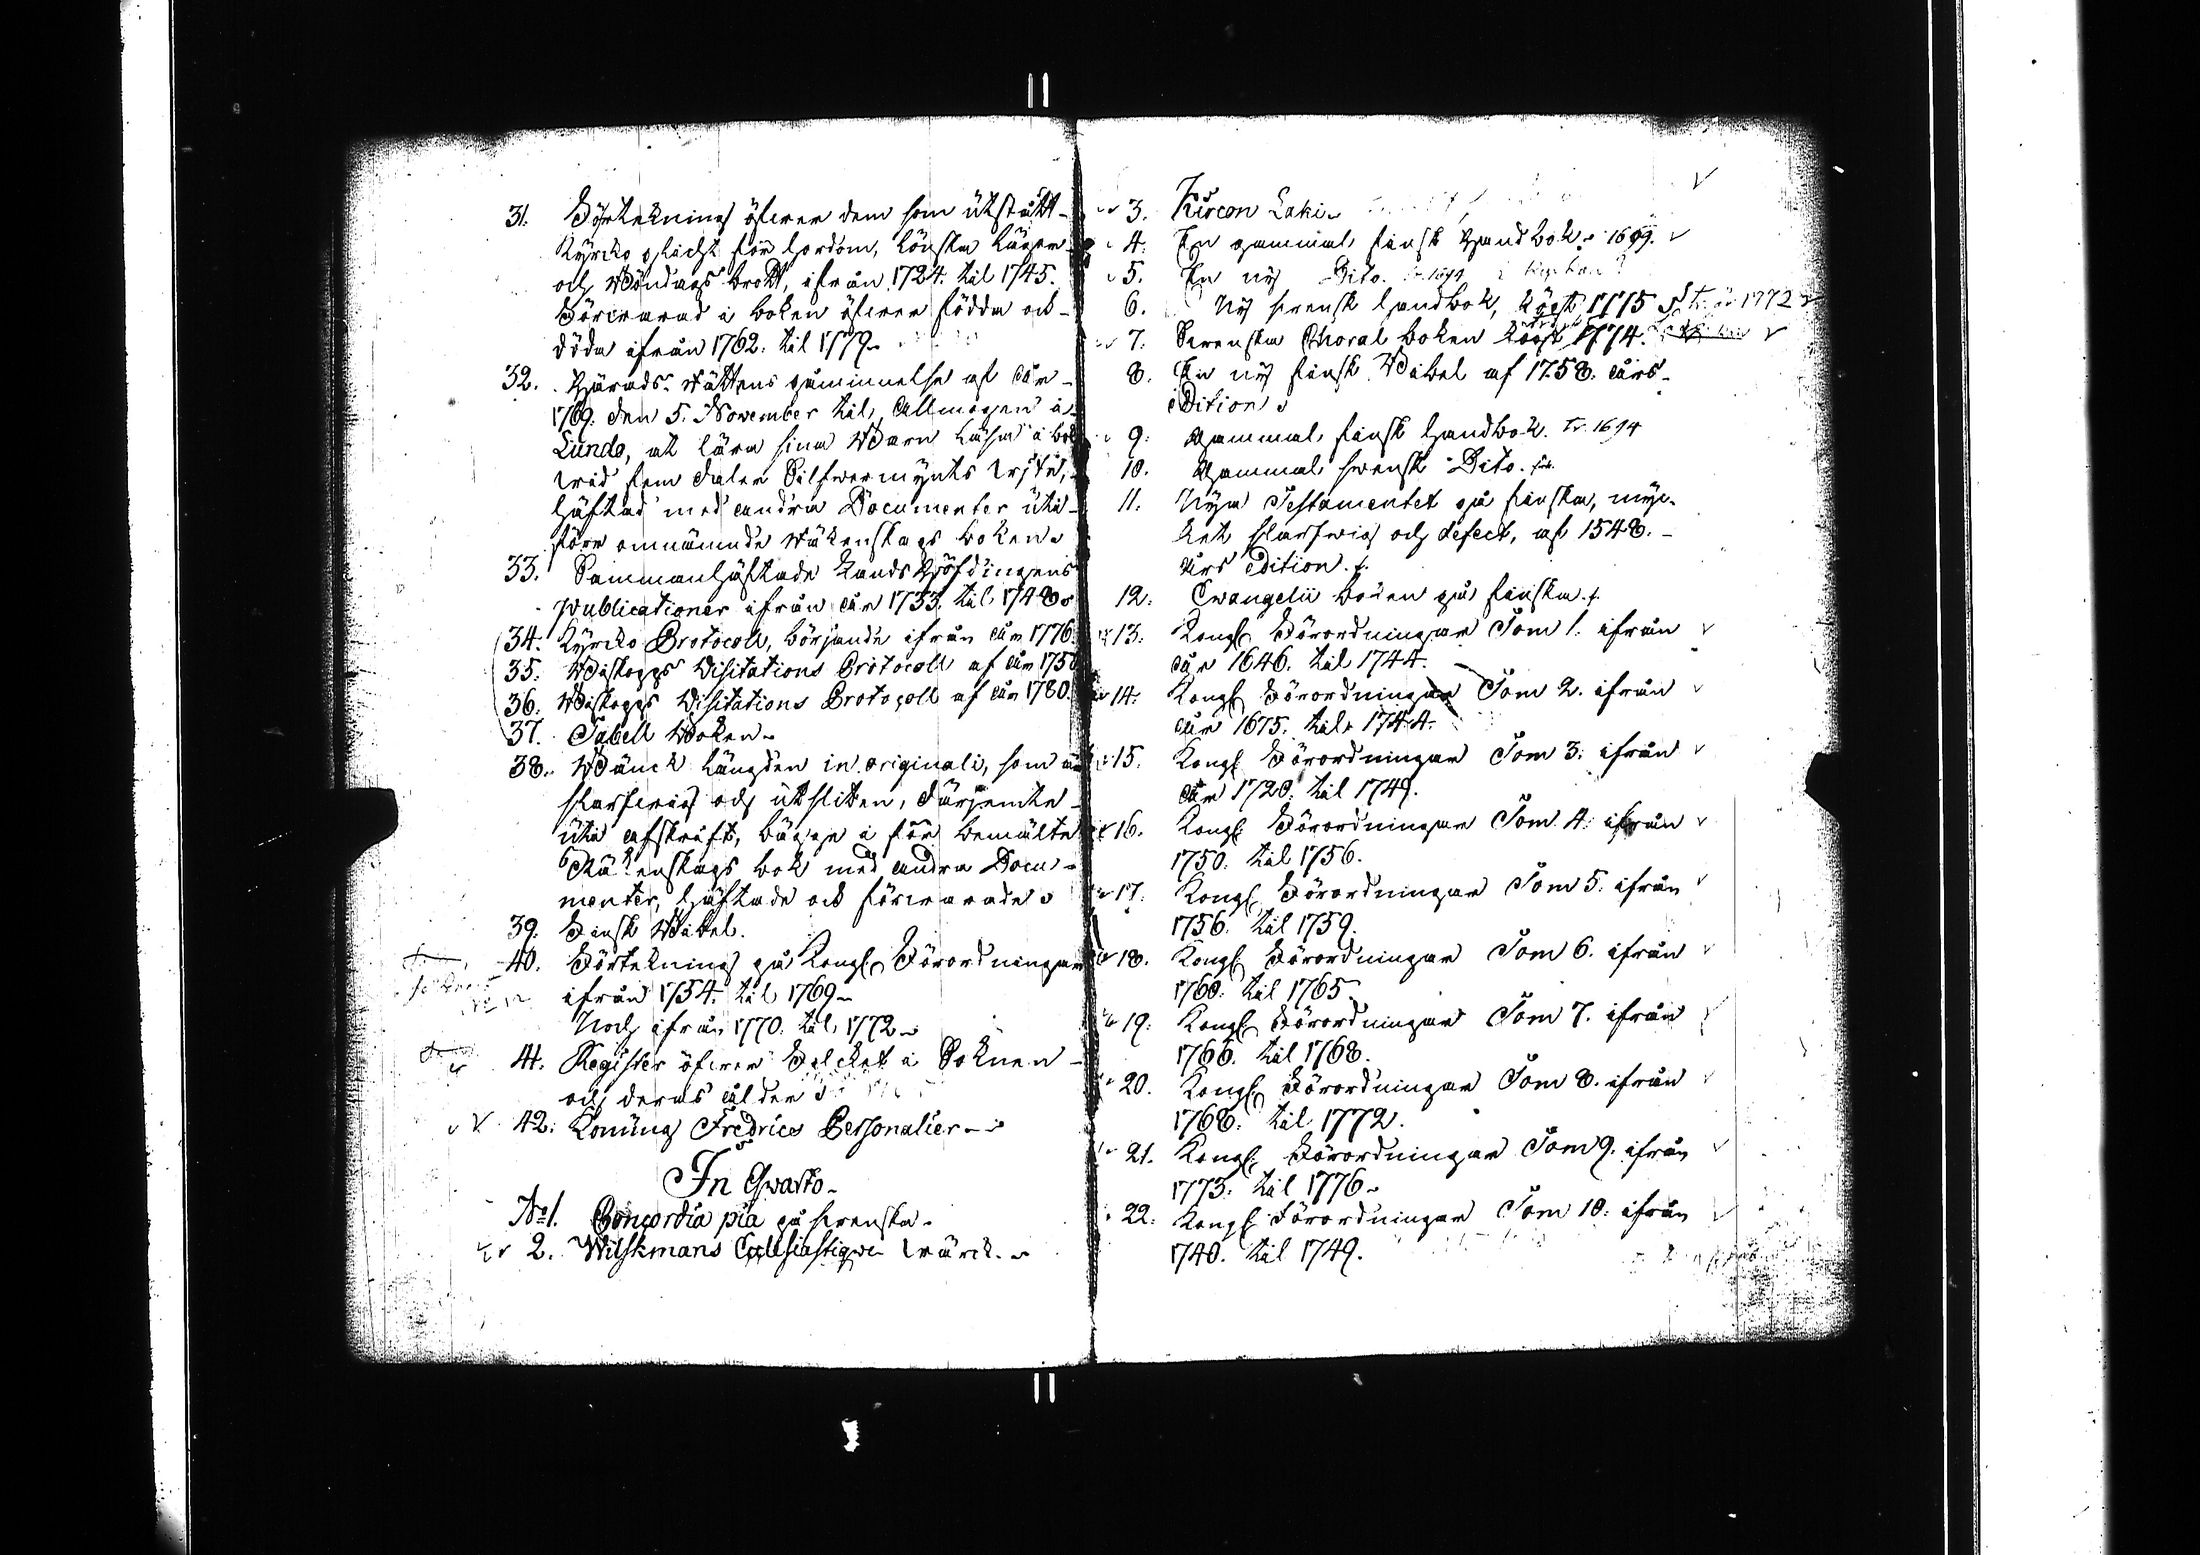 31. Förtekning öfwer dem som utstådt
Kyrko plickt för hordom, lönska läger
och Böndags brott, ifrån 1724. til 1745.
Förwarad i boken öfwer födda och
döda ifrån 1762. til 1779.
32. Härads Rättens påminnelse af år
1769. den 5. November til Allmogen i
Lundo, at lära sina Barn läsa i bok
wid fem daler Silfwermynts wite,
häftad med andra Documenter uti
före omnämnde Räkenskaps boken.
33. Sammanhäftade Landshöfdingens
Publicationer ifrån år 1733. til 1748.
34. Kyrko Protocoll, börjande ifrån år 1776.
35. Biskopps Visitations Protocoll af år 175
36. Biskopps Visitations Protocoll af år 1780.
37. Tabell Boken.
38. Bänck längden in originali, som är
skarfwig och utsliten, därjemte
uti afskrift, bägge i för bemälte
Räkenskaps bok med andra Docu-
menter, häftade och förwarade.
39. Finsk Bibel.
40. Förtekning på Kongl. Förordningar
ifrån 1754. til 1769.
Noch ifrån 1770. til 1772.
41. Register öfwer Folcket i Soknen
och deras ålder.
42. Konung Fredrics Personalier.
In Qwarto.
No 1. Concordia pia på swenska.
2. Wilskmans Ecclesiastique wärck.
3. Kircon Laki.
4. En gammal finsk Handbok. 1699.
5. En ny Dito.
6. Ny swensk handbok, köpt 1775 Tr. år 1772
7. Swenska Choral boken köpt 1774.
8. En ny finsk Bibel af 1758. års
edition.
9. Gammal finsk handbok. Tr. 1694
10. Gammal swensk Dito.
11. Nya Testamentet på finska, myc-
ket skarfwig och defect, af 1548.
års edition.
12. Ewangelii boken på finska.
13. Kongl. Förordningar Tom 1. ifrån
år 1646. til 1744.
14. Kongl. Förordningar Tom 2. ifrån
år 1675. til 1744.
15. Kongl. Förordningar Tom 3. ifrån
år 1720. til 1749.
16. Kongl. Förordningar Tom 4. ifrån
1750. til 1756.
17. Kongl. Förordningar Tom 5. ifrån
1756. til 1759.
18. Kongl. Förordningar Tom 6. ifrån
1760. til 1765.
19. Kongl. Förordningar Tom 7. ifrån
1766. til 1768.
20. Kongl. Förordningar Tom 8. ifrån
1768. til 1772.
21. Kongl. Förordningar Tom 9. ifrån
1773. til 1776.
22. Kongl. Förordningar Tom 10. ifrån
1740. til 1749.